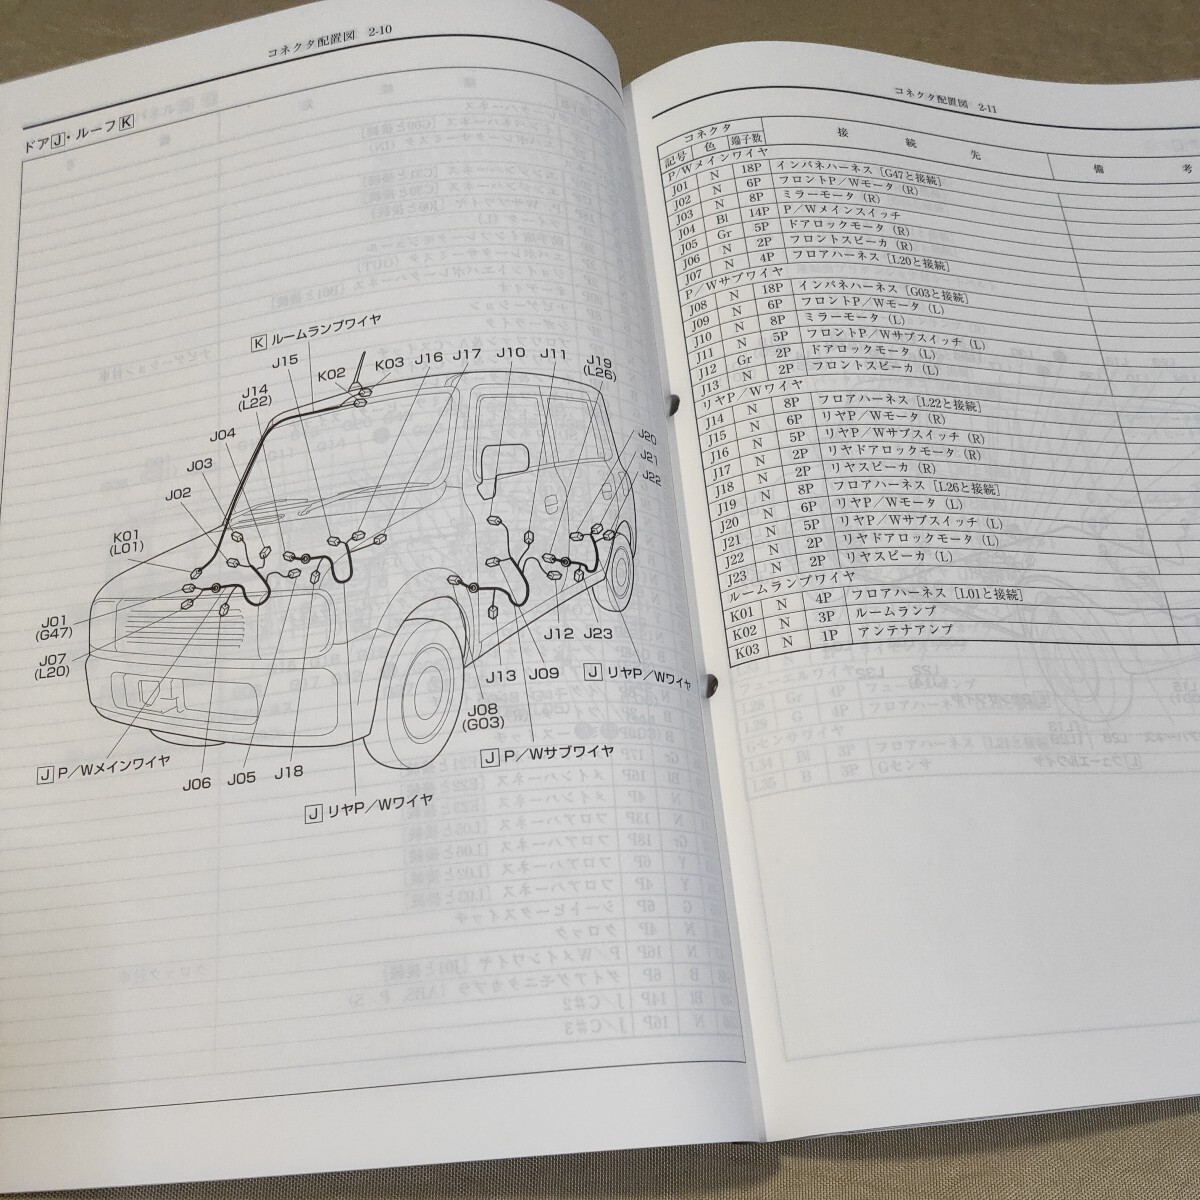 コネクタ配置図 2-10
ドアJ・ルーフK
K ルームランプワイヤ
J15
K02
K03
J16
J17
J10
J11
J19
(L26)
J14
(L22)
J04
J03
J02
K01
(L01)
J20
J21
J22
J01
(G47)
J07
(L20)
J12
J23
J13
J09
J リヤP/Wワイヤ
J08
(G03)
J P/Wサブワイヤ
J P/Wメインワイヤ
J06
J05
J18
J リヤP/Wワイヤ
コネクタ配置図 2-11
コネクタ 接続先 備考
記号 色 端子数
P/Wメインワイヤ
J01 N 18P インパネハーネス [G47と接続]
J02 N 6P フロントP/Wモータ (R)
J03 N 8P ミラーモータ (R)
J04 Bl 14P P/Wメインスイッチ
J05 Gr 5P ドアロックモータ (R)
J06 N 2P フロントスピーカ (R)
J07 N 4P フロアハーネス [L20と接続]
P/Wサブワイヤ
J08 N 18P インパネハーネス [G03と接続]
J09 N 6P フロントP/Wモータ (L)
J10 N 8P ミラーモータ (L)
J11 N 5P フロントP/Wサブスイッチ (L)
J12 Gr 2P ドアロックモータ (L)
J13 N 2P フロントスピーカ (L)
リヤP/Wワイヤ
J14 N 8P フロアハーネス [L22と接続]
J15 N 6P リヤP/Wモータ (R)
J16 N 5P リヤP/Wサブスイッチ (R)
J17 N 2P リヤドアロックモータ (R)
J18 N 2P リヤスピーカ (R)
J19 N 8P フロアハーネス [L26と接続]
J20 N 6P リヤP/Wモータ (L)
J21 N 5P リヤP/Wサブスイッチ (L)
J22 N 2P リヤドアロックモータ (L)
J23 N 2P リヤスピーカ (L)
ルームランプワイヤ
K01 N 4P フロアハーネス [L01と接続]
K02 N 3P ルームランプ
K03 N 1P アンテナアンプ